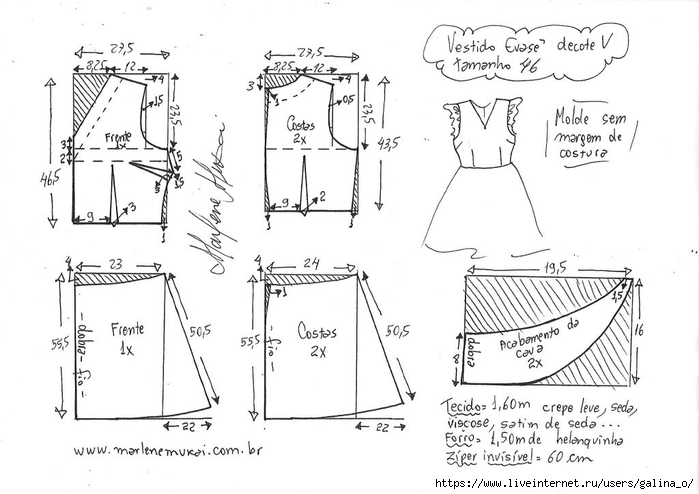 Vestido Evasê decote V
tamanho 46
Molde sem
margem de
costura
27,5
8,25
12
4
1,5
23,5
46,5
3
2
Frente
1x
1,5
3
1,5
9
3
1
27,5
8,25
12
4
3
1
0,5
23,5
43,5
Costas
2x
9
2
1
1
Marlene Mukai
4
23
55,5
dobra - fio
Frente
1x
50,5
22
4
24
1
55,5
fio
Costas
2x
50,5
22
19,5
1,5
16
8
dobra
Acabamento da
cava
2x
Tecido= 1,60m crepe leve, seda,
viscose, satim de seda...
Forro= 1,50m de helanquinha
Zíper invisível= 60 cm
www.marlenemukai.com.br
https://www.liveinternet.ru/users/galina_o/